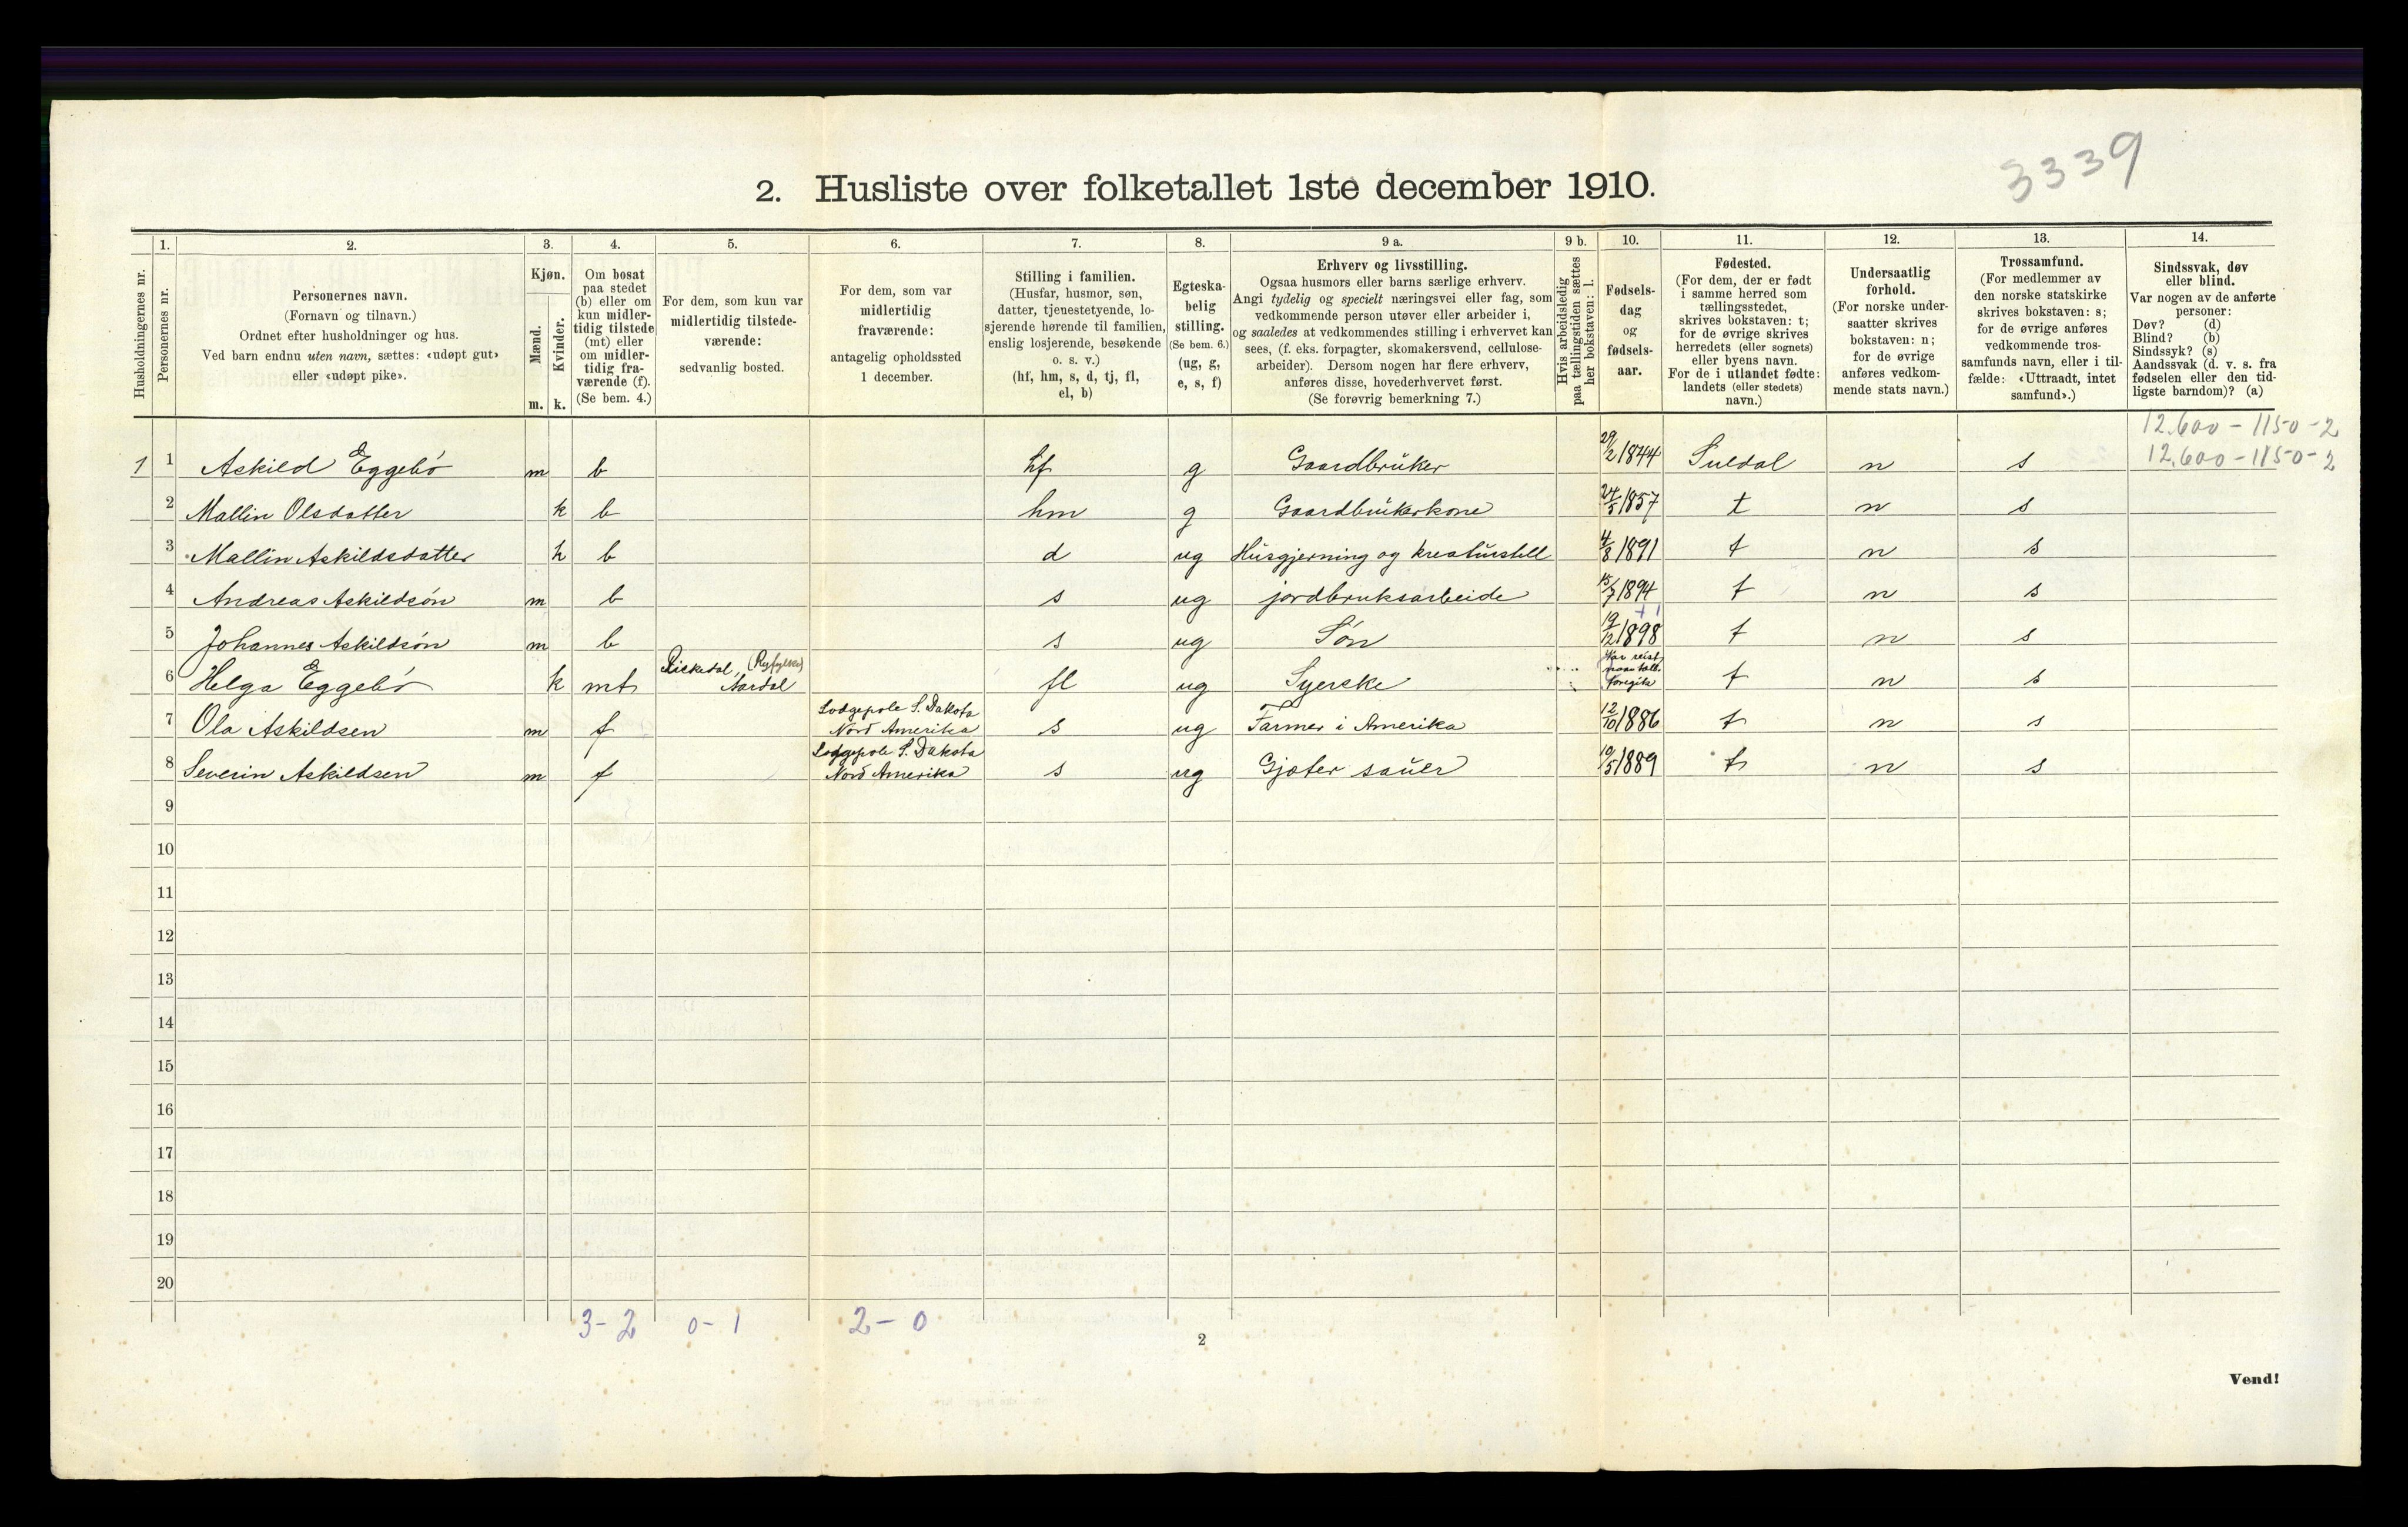 3339
2. Husliste over folketallet 1ste december 1910.
Husholdningernes nr.
1.
Personernes nr.
2.
Personernes navn.
(Fornavn og tilnavn.)
Ordnet efter husholdninger og hus.
Ved barn endnu uten navn, sættes: «udøpt gut»
eller «udøpt pike».
3.
Kjøn.
Mænd.
Kvinder.
m. k.
4.
Om bosat
paa stedet
(b) eller om
kun midler-
tidig tilstede
(mt) eller
om midler-
tidig fra-
værende (f).
(Se bem. 4.)
5.
For dem, som kun var
midlertidig tilstede-
værende:
sedvanlig bosted.
6.
For dem, som var
midlertidig
fraværende:
antagelig opholdssted
1 december.
7.
Stilling i familien.
(Husfar, husmor, søn,
datter, tjenestetyende, lo-
sjerende hørende til familien,
enslig losjerende, besøkende
o. s. v.)
(hf, hm, s, d, tj, fl,
el, b)
8.
Egteska-
belig
stilling.
(Se bem. 6.)
(ug, g,
e, s, f)
9 a.
Erhverv og livsstilling.
Ogsaa husmors eller barns særlige erhverv.
Angi tydelig og specielt næringsvei eller fag, som
vedkommende person utøver eller arbeider i,
og saaledes at vedkommendes stilling i erhvervet kan
sees, (f. eks. forpagter, skomakersvend, cellulose-
arbeider). Dersom nogen har flere erhverv,
anføres disse, hovederhvervet først.
(Se forøvrig bemerkning 7.)
9 b.
Hvis arbeidsledig
paa tællingstiden sættes
her bokstaven: l.
10.
Fødsels-
dag
og
fødsels-
aar.
11.
Fødested.
(For dem, der er født
i samme herred som
tællingsstedet,
skrives bokstaven: t;
for de øvrige skrives
herredets (eller sognets)
eller byens navn.
For de i utlandet fødte:
landets (eller stedets)
navn.)
12.
Undersaatlig
forhold.
(For norske under-
saatter skrives
bokstaven: n;
for de øvrige
anføres vedkom-
mende stats navn.)
13.
Trossamfund.
(For medlemmer av
den norske statskirke
skrives bokstaven: s;
for de øvrige anføres
vedkommende tros-
samfunds navn, eller i til-
fælde: «Uttraadt, intet
samfund».)
14.
Sindssvak, døv
eller blind.
Var nogen av de anførte
personer:
Døv? (d)
Blind? (b)
Sindssyk? (s)
Aandssvak (d. v. s. fra
fødselen eller den tid-
ligste barndom)? (a)
12.600 - 1150 - 2
12.600 - 1150 - 2
1 1 Askild Eggebö m b hf g Gaardbruker 29/2 1844 Suldal n s
2 Mallin Olsdatter k b hm g Gaardbrukerkone 24/5 1857 t n s
3 Mallin Askildsdatter k b d ug Husgjerning og kreaturstell 4/8 1891 t n s
4 Andreas Askildsön m b s ug jordbruksarbeide 15/7 1894 t n s
5 Johannes Askildsön m b s ug Sön 19/12 1898 t n s
6 Helga Eggebö k mt Riskedal, (Ryfylke) Aardal fl ug Syerske Har reist t n s
7 Ola Askildsen m f Lodgepole S. Dakota Nord Amerika s ug Farmer i Amerika 12/10 1886 t n s
8 Severin Askildsen m f Lodgepole S. Dakota Nord Amerika s ug Gjæter sauer 19/5 1889 t n s
9
10
11
12
13
14
15
16
17
18
19
20
3-2 0-1 2-0
2
Vend!